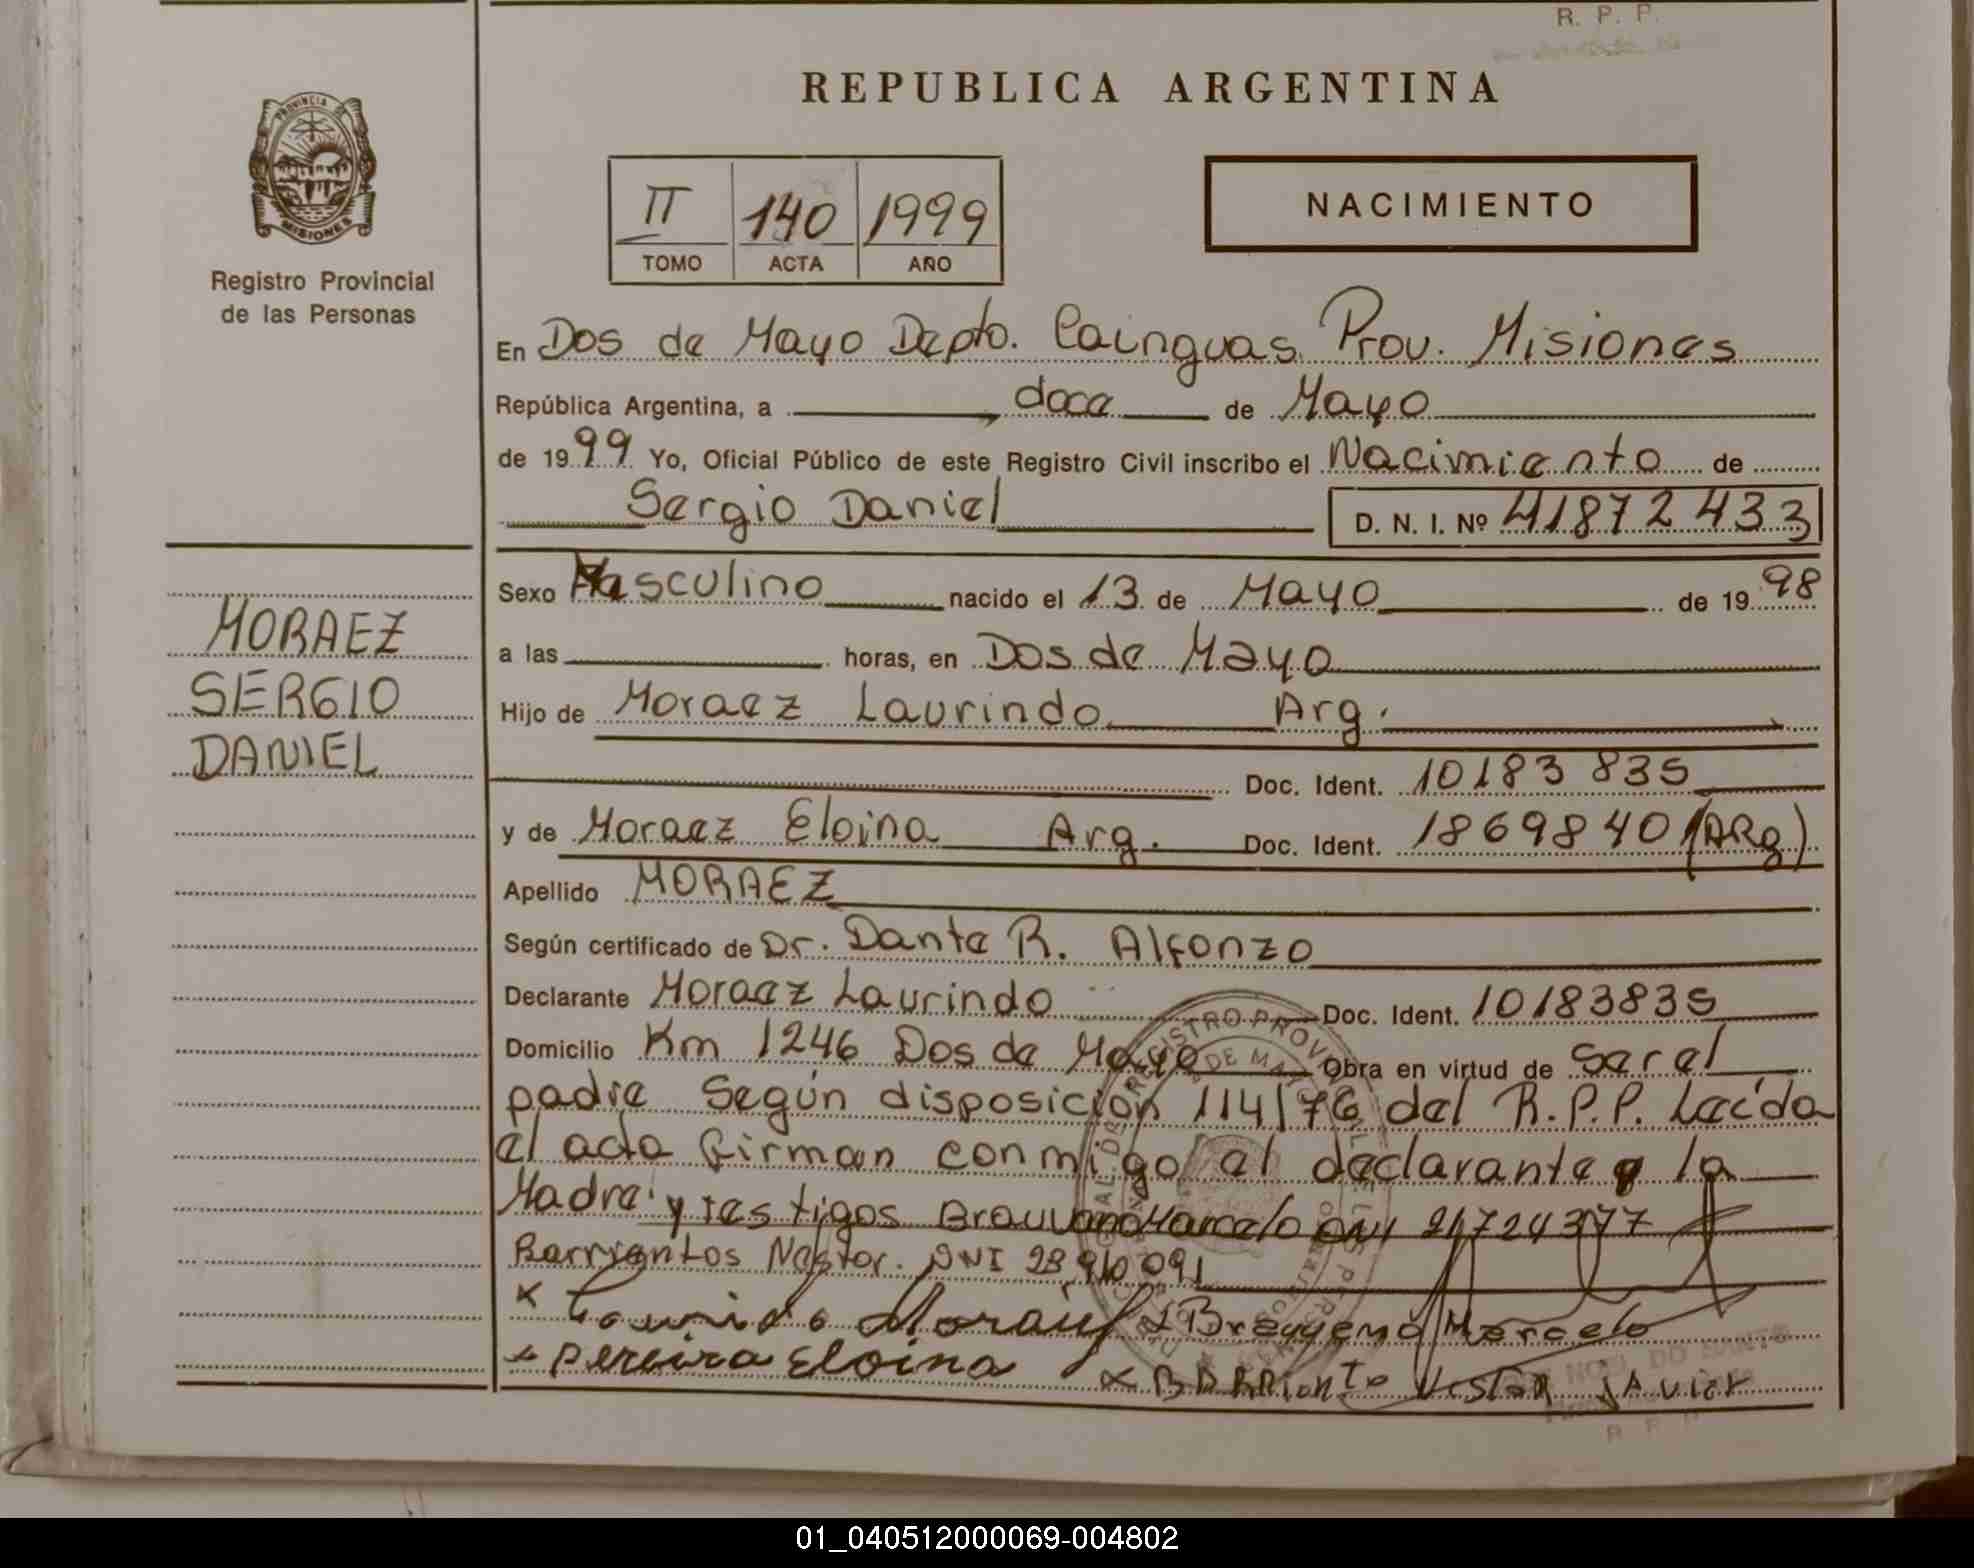 R. P. P.
REPUBLICA ARGENTINA
PROVINCIA DE
MISIONES
Registro Provincial
de las Personas
II 140 1999
TOMO ACTA AÑO
NACIMIENTO
En Dos de Mayo Depto. Cainguas Prov. Misiones
República Argentina, a doce de Mayo
de 1999 Yo, Oficial Público de este Registro Civil inscribo el Nacimiento de
Sergio Daniel D. N. I. Nº 41872433
MORAEZ
SERGIO
DANIEL
Sexo Masculino nacido el 13 de Mayo de 1998
a las horas, en Dos de Mayo
Hijo de Moraez Laurindo Arg.
Doc. Ident. 10183835
y de Moraez Eloina Arg. Doc. Ident. 18698401 (ARg)
Apellido MORAEZ
Según certificado de Dr. Dante R. Alfonzo
Declarante Moraez Laurindo Doc. Ident. 10183835
Domicilio Km 1246 Dos de Mayo Obra en virtud de Ser el
padre Según disposición 114/76 del R.P.P. Leída
el acta firman conmigo el declarante y la
Madre y testigos Marcelo DNI
Barrientos Nestor. DNI
x Laurindo
x Pereira Eloina
x Marcelo
x Barriento Nestor Javier
01_040512000069-004802